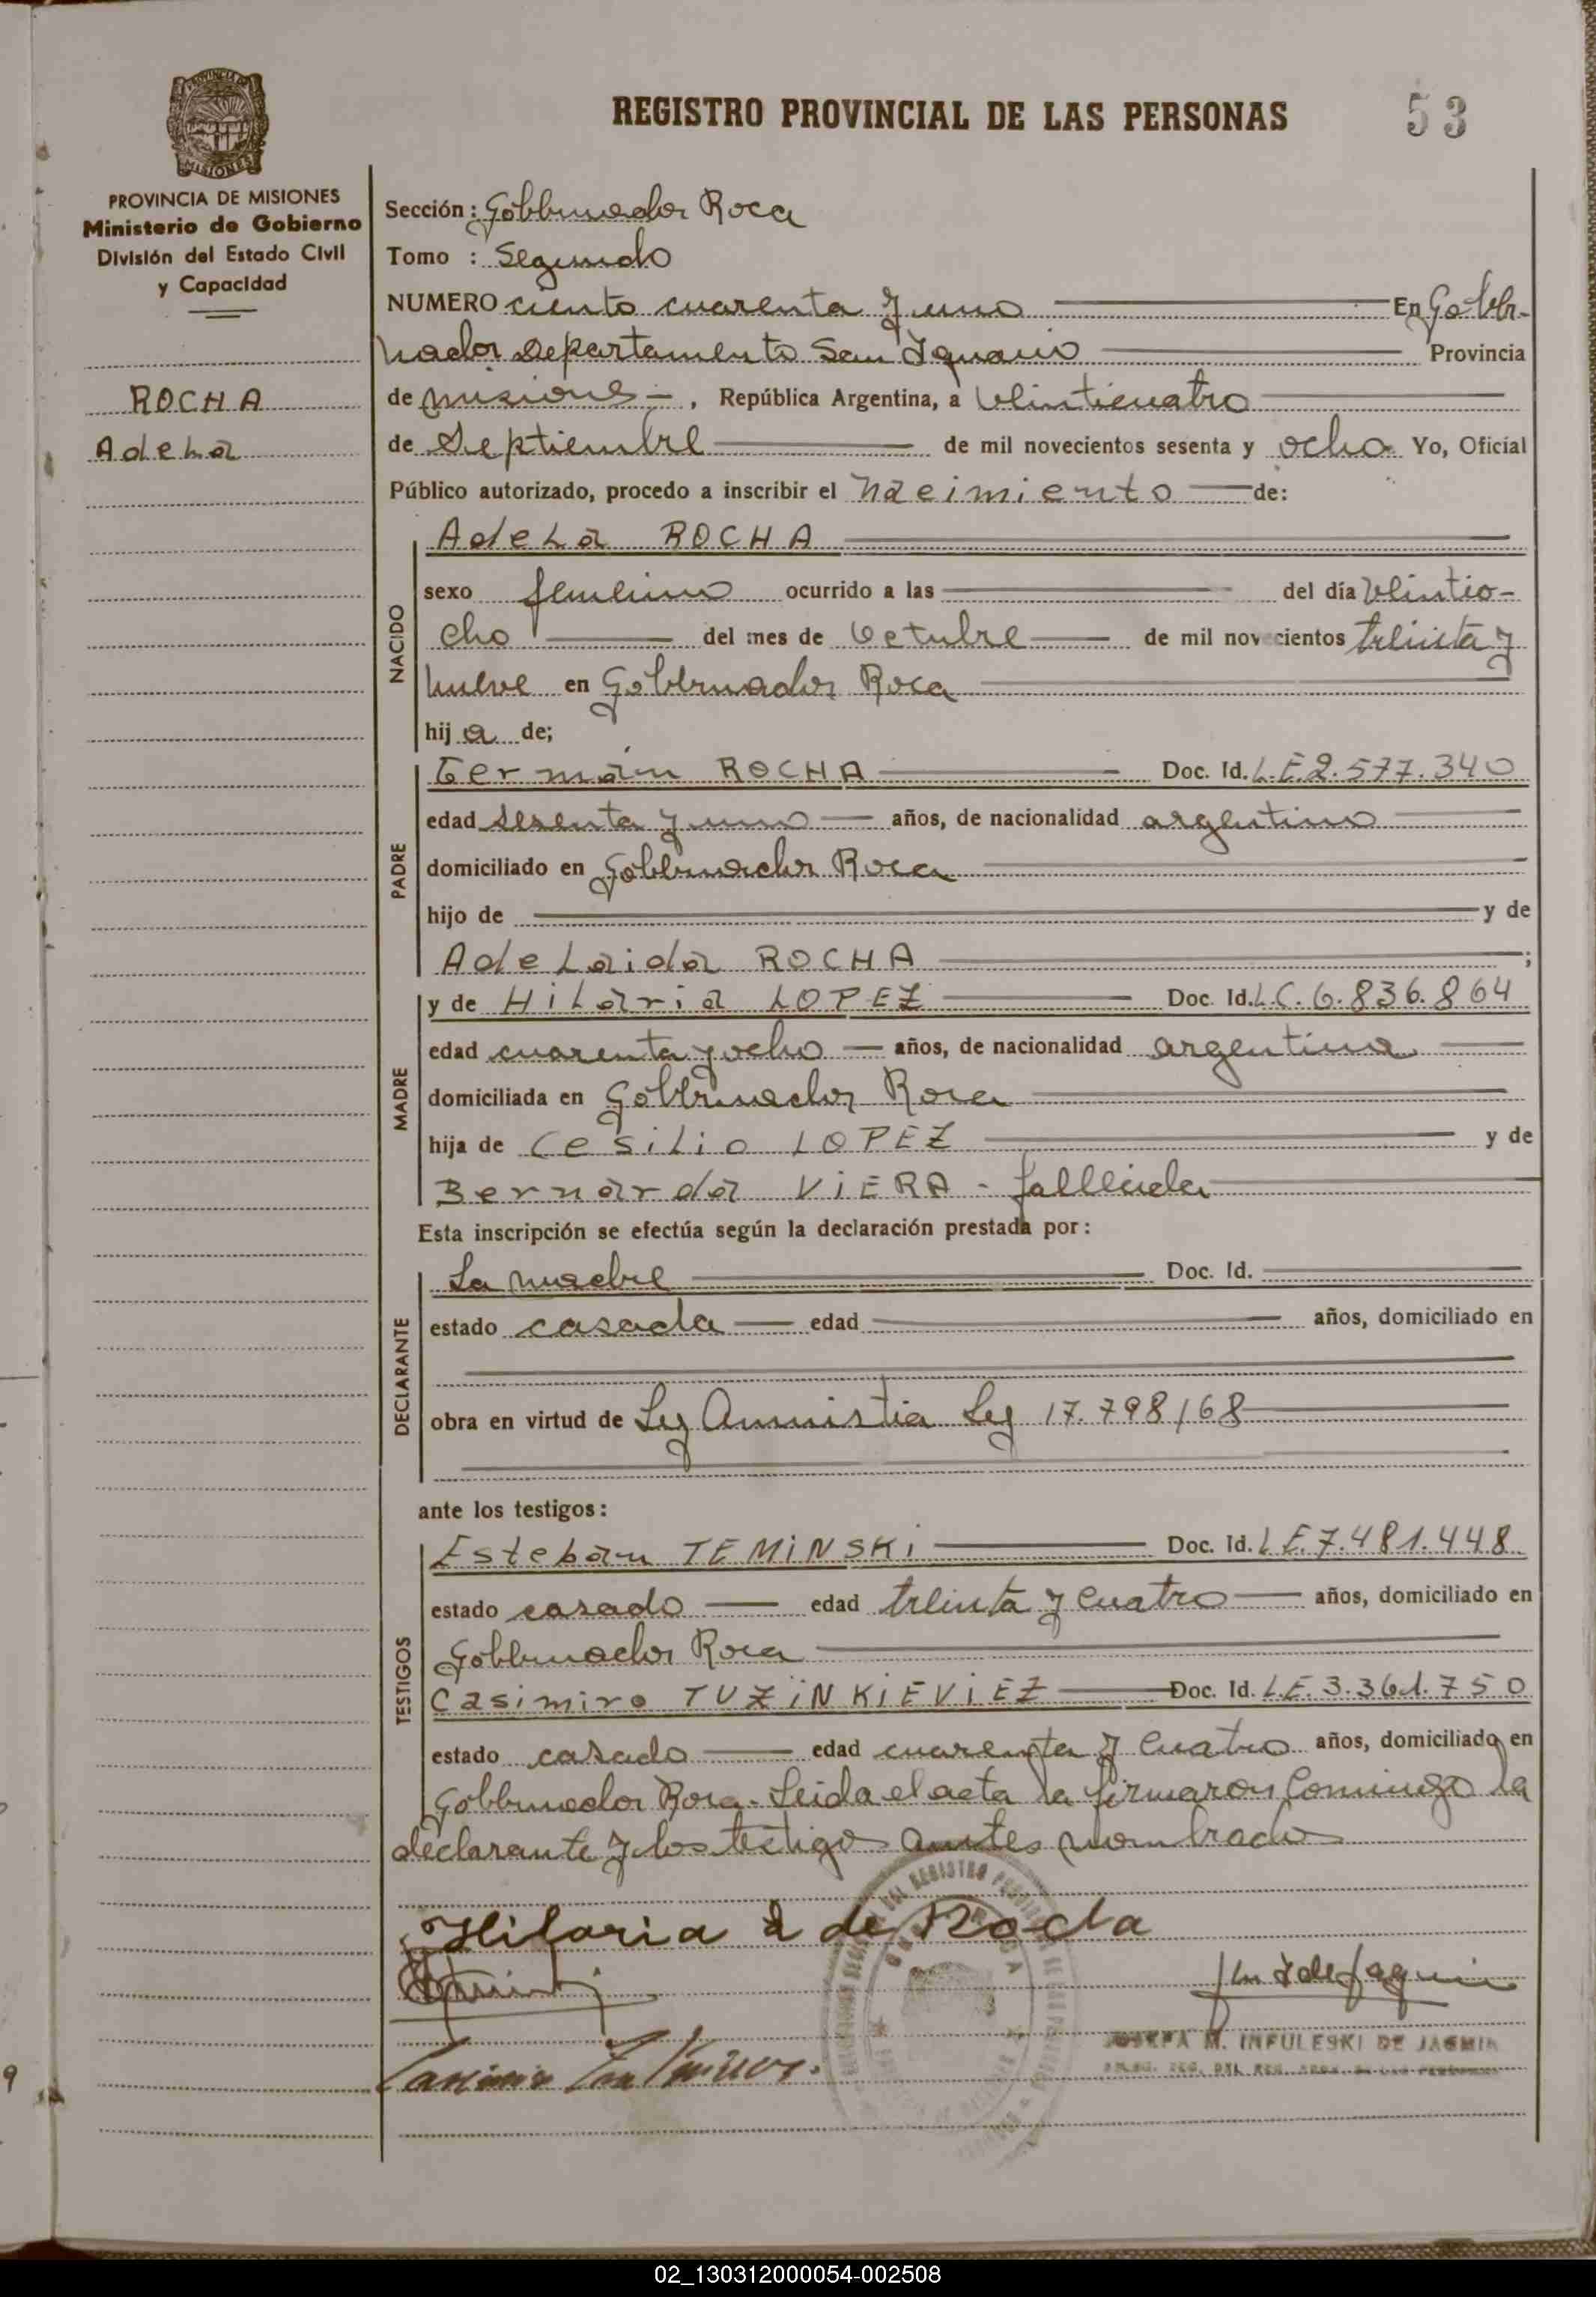 REGISTRO PROVINCIAL DE LAS PERSONAS
53
PROVINCIA DE MISIONES
Ministerio de Gobierno
División del Estado Civil
y Capacidad
ROCHA
Adela
Sección: Gobernador Roca
Tomo : Segundo
NUMERO ciento cuarenta y uno En Gober-
nador Departamento San Ignacio Provincia
de Misiones -, República Argentina, a veinticuatro
de Septiembre de mil novecientos sesenta y ocho Yo, Oficial
Público autorizado, procedo a inscribir el nacimiento de:
NACIDO
Adela ROCHA
sexo femenino ocurrido a las del día veintio-
cho del mes de Octubre de mil novecientos treinta y
nueve en Gobernador Roca
hija de;
PADRE
German ROCHA Doc. Id. L.E.2.577.340
edad sesenta y uno años, de nacionalidad argentino
domiciliado en Gobernador Roca
hijo de y de
Adelaida ROCHA ;
MADRE
y de Hilaria LOPEZ Doc. Id. L.C.6.836.864
edad cuarenta y ocho años, de nacionalidad argentina
domiciliada en Gobernador Roca
hija de Cesilio LOPEZ y de
Bernarda VIERA - fallecida
Esta inscripción se efectúa según la declaración prestada por:
DECLARANTE
La madre Doc. Id.
estado casada edad años, domiciliado en
obra en virtud de Ley Amnistia Ley 17.798/68
ante los testigos:
TESTIGOS
Esteban TEMINSKI Doc. Id. L.E.7.481.448
estado casado edad treinta y cuatro años, domiciliado en
Gobernador Roca
Casimiro TUZINKIEVIEZ Doc. Id. L.E.3.361.750
estado casado edad cuarenta y cuatro años, domiciliado en
Gobernador Roca - Leida el acta la firmaron conmigo la
declarante y los testigos antes nombrados
Hilaria L de Rocha
JOSEFA M. INFULESKI DE JASMIN
02_130312000054-002508